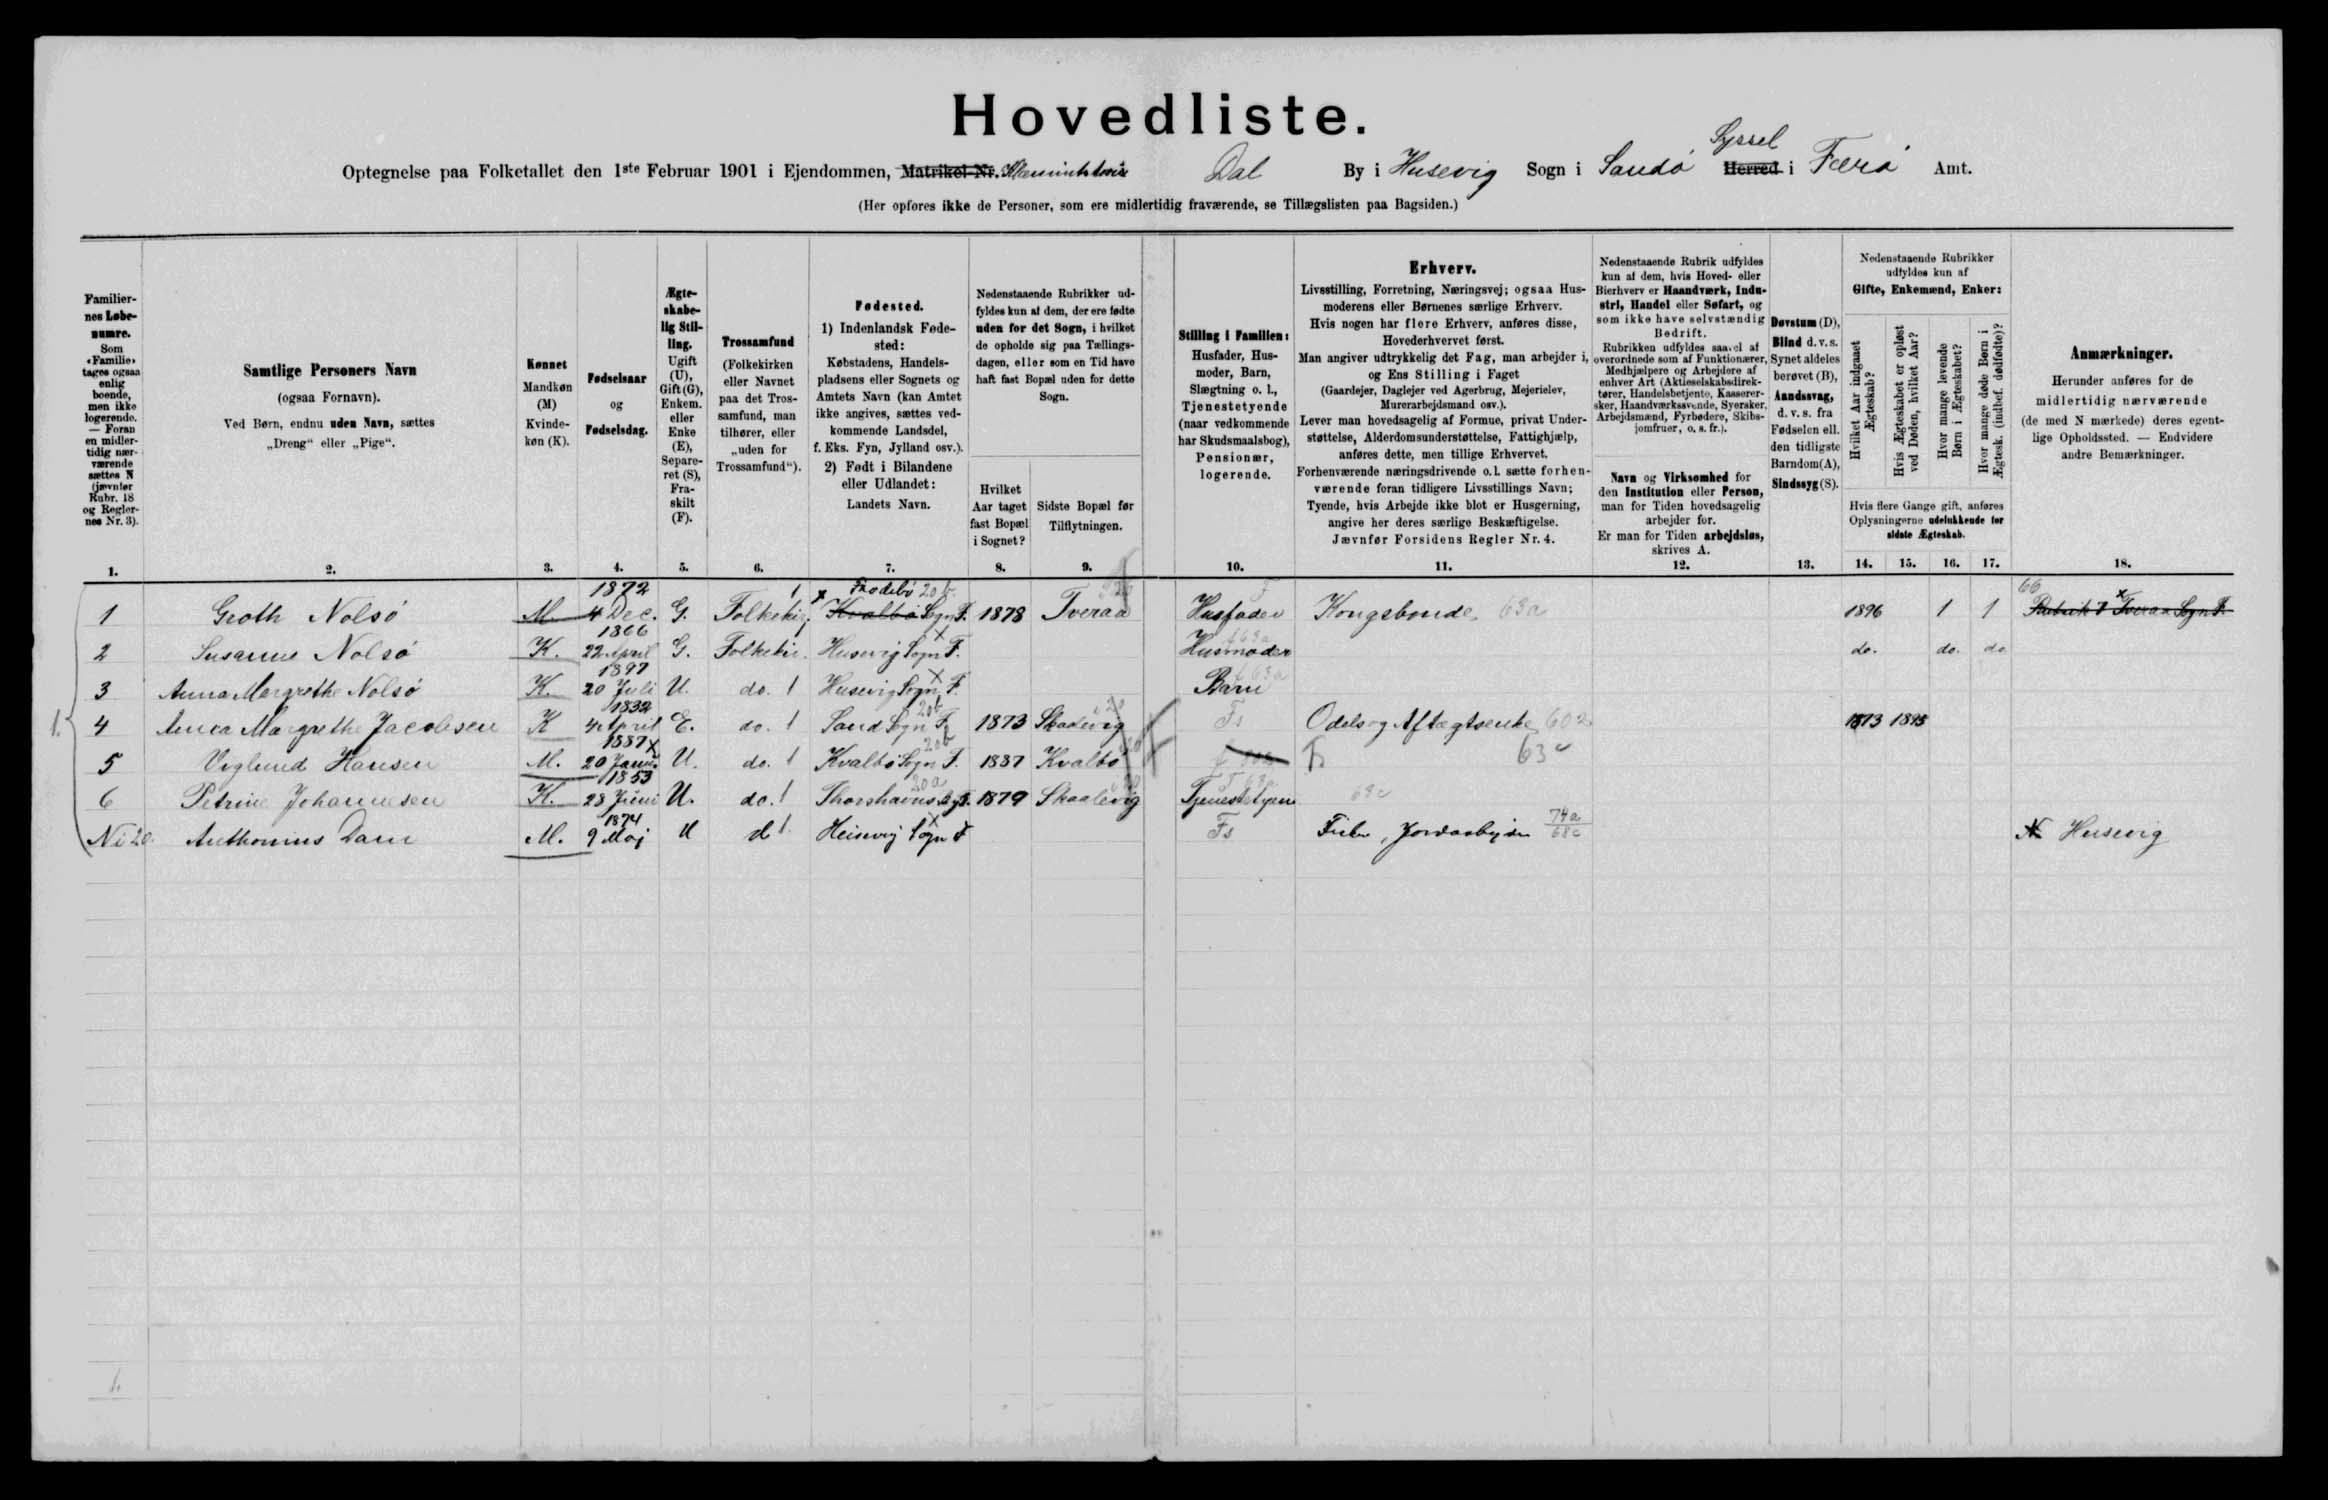 Hovedliste.
Syssel
Optegnelse paa Folketallet den 1ste Februar 1901 i Ejendommen, Matrikel-Nr. Dal By i Husevig Sogn i Sandö Herred i Færö Amt.
(Her opføres ikke de Personer, som ere midlertidig fraværende, se Tillægslisten paa Bagsiden.)
Familiernes Løbenumre.
Som «Familie» tages ogsaa enlig boende, men ikke logerende. — Foran en midlertidig nærværende sættes N (jævnfør Rubr. 18 og Reglernes Nr. 3).
Samtlige Personers Navn
(ogsaa Fornavn).
Ved Børn, endnu uden Navn, sættes „Dreng“ eller „Pige“.
Kønnet
Mandkøn (M)
Kvindekøn (K).
Fødselsaar og Fødselsdag.
Ægteskabelig Stilling.
Ugift (U), Gift (G), Enkem. eller Enke (E), Separeret (S), Fraskilt (F).
Trossamfund
(Folkekirken eller Navnet paa det Trossamfund, man tilhører, eller „uden for Trossamfund“).
Fødested.
1) Indenlandsk Fødested:
Købstadens, Handelspladsens eller Sognets og Amtets Navn (kan Amtet ikke angives, sættes vedkommende Landsdel, f. Eks. Fyn, Jylland osv.).
2) Født i Bilandene eller Udlandet:
Landets Navn.
Nedenstaaende Rubrikker udfyldes kun af dem, der ere fødte uden for det Sogn, i hvilket de opholde sig paa Tællingsdagen, eller som en Tid have haft fast Bopæl uden for dette Sogn.
Hvilket Aar taget fast Bopæl i Sognet?
Sidste Bopæl før Tilflytningen.
Stilling i Familien:
Husfader, Husmoder, Barn, Slægtning o. l., Tjenestetyende (naar vedkommende har Skudsmaalsbog), Pensionær, logerende.
Erhverv.
Livsstilling, Forretning, Næringsvej; ogsaa Husmoderens eller Børnenes særlige Erhverv.
Hvis nogen har flere Erhverv, anføres disse, Hovederhvervet først.
Man angiver udtrykkelig det Fag, man arbejder i, og Ens Stilling i Faget
(Gaardejer, Daglejer ved Agerbrug, Mejerielev, Murerarbejdsmand osv.).
Lever man hovedsagelig af Formue, privat Understøttelse, Alderdomsunderstøttelse, Fattighjælp, anføres dette, men tillige Erhvervet.
Forhenværende næringsdrivende o. l. sætte forhenværende foran tidligere Livsstillings Navn;
Tyende, hvis Arbejde ikke blot er Husgerning, angive her deres særlige Beskæftigelse.
Jævnfør Forsidens Regler Nr. 4.
Nedenstaaende Rubrik udfyldes kun af dem, hvis Hoved- eller Bierhverv er Haandværk, Industri, Handel eller Søfart, og som ikke have selvstændig Bedrift.
Rubrikken udfyldes saavel af overordnede som af Funktionærer, Medhjælpere og Arbejdere af enhver Art (Aktieselskabsdirektører, Handelsbetjente, Kasserersker, Haandværkssvende, Syersker, Arbejdsmænd, Fyrbødere, Skibsjomfruer, o. s. fr.).
Navn og Virksomhed for den Institution eller Person, man for Tiden hovedsagelig arbejder for.
Er man for Tiden arbejdsløs, skrives A.
Døvstum (D), Blind d. v. s. Synet aldeles berøvet (B), Aandssvag, d. v. s. fra Fødselen ell. den tidligste Barndom (A), Sindssyg (S).
Nedenstaaende Rubrikker udfyldes kun af Gifte, Enkemænd, Enker:
Hvilket Aar indgaaet Ægteskab?
Hvis Ægteskabet er opløst ved Døden, hvilket Aar?
Hvor mange levende Børn i Ægteskabet?
Hvor mange døde Børn i Ægtesk. (indbef. dødfødte)?
Hvis flere Gange gift, anføres Oplysningerne udelukkende for sidste Ægteskab.
Anmærkninger.
Herunder anføres for de midlertidig nærværende (de med N mærkede) deres egentlige Opholdssted. — Endvidere andre Bemærkninger.
1. 2. 3. 4. 5. 6. 7. 8. 9. 10. 11. 12. 13. 14. 15. 16. 17. 18.
1 Groth Nolsö M. 1872 4 Dec. G. Folkekir. 1 Frodebö 20b. Kvalbö Sogn F. 1878 Tveraa Husfader Kongsbonde 63a 1896 1 1 66 Rubrik 7 Tveraa Sogn F.
2 Susanne Nolsö K. 1866 22 April G. Folkekir. Husevig Sogn F. Husmoder do. do. do
3 Anna Margrethe Nolsö K. 1897 20 Juli U. do. 1 Husevig Sogn F. Barn
4 Anna Margrethe Jacobsen K 1832 4 April E. do. 1 Sand Sogn F. 20b 1873 Skaalevig Fs Odels og Aftægtsenke 60a 1873 1895
5 Viglund Hansen M. 1887 20 Janu. U. do. 1 Kvalbö Sogn F. 20b 1887 Kvalbö 63c
6 Petrine Johannesen K. 1853 28 Juni U. do. 1 Thorshavns Sg F. 20a 1879 Skaalevig Tjenestetyen 68c
N i 20 Anthonius Dam M. 1874 9 Maj U d 1 Husevig Sogn F Fs Fisker, Jordarbejder 74a 68c N Husevig
1.